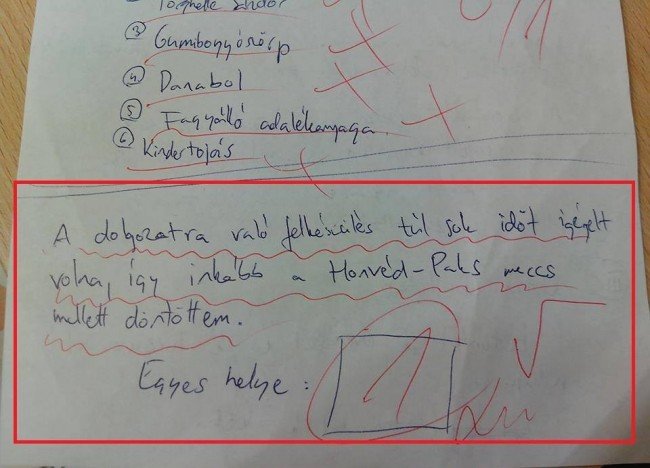 Torghelle Sándor
③ Gumibogyószörp
④ Danabol
⑤ Fagyálló adalékanyaga
⑥ Kindertojás
A dolgozatra való felkészülés túl sok időt igényelt
volna, így inkább a Honvéd-Paks meccs
mellett döntöttem.
Egyes helye: 1